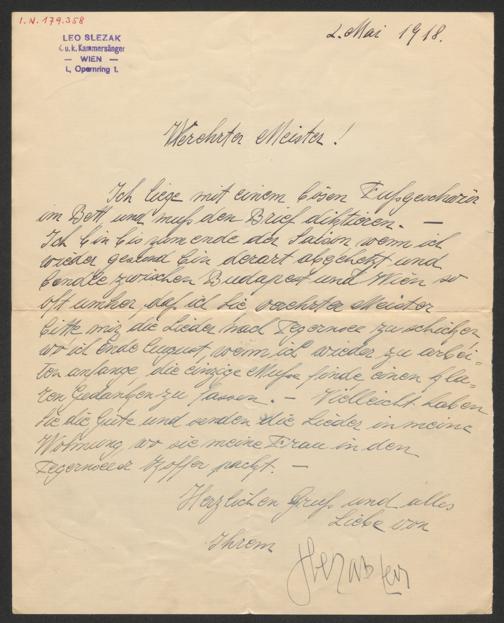 I.N. 179.358
LEO SLEZAK
k.u.k. Kammersänger
— WIEN —
I., Opernring 1.
2. Mai 1918.
Verehrter Meister!
Ich liege mit einem bösen Fußgeschwür
im Bett und muß den Brief diktieren. —
Ich bin bis zum ende der Saison, wenn ich
wieder gesund bin derart abgehetzt und
pendle zwischen Budapest und Wien so
oft umher, daß ich Sie verehrter Meister
bitte mir die Lieder nach Tegernsee zu schicken,
wo ich Ende August, wenn ich wieder zu arbei-
ten anfange, die einzige Muße finde einen kla-
ren Gedanken zu fassen. — Vielleicht haben
Sie die Güte und senden die Lieder in meine
Wohnung wo sie meine Frau in den
Tegernseer Koffer packt. —
Herzlichen Gruß und alles
Liebe von
Ihrem